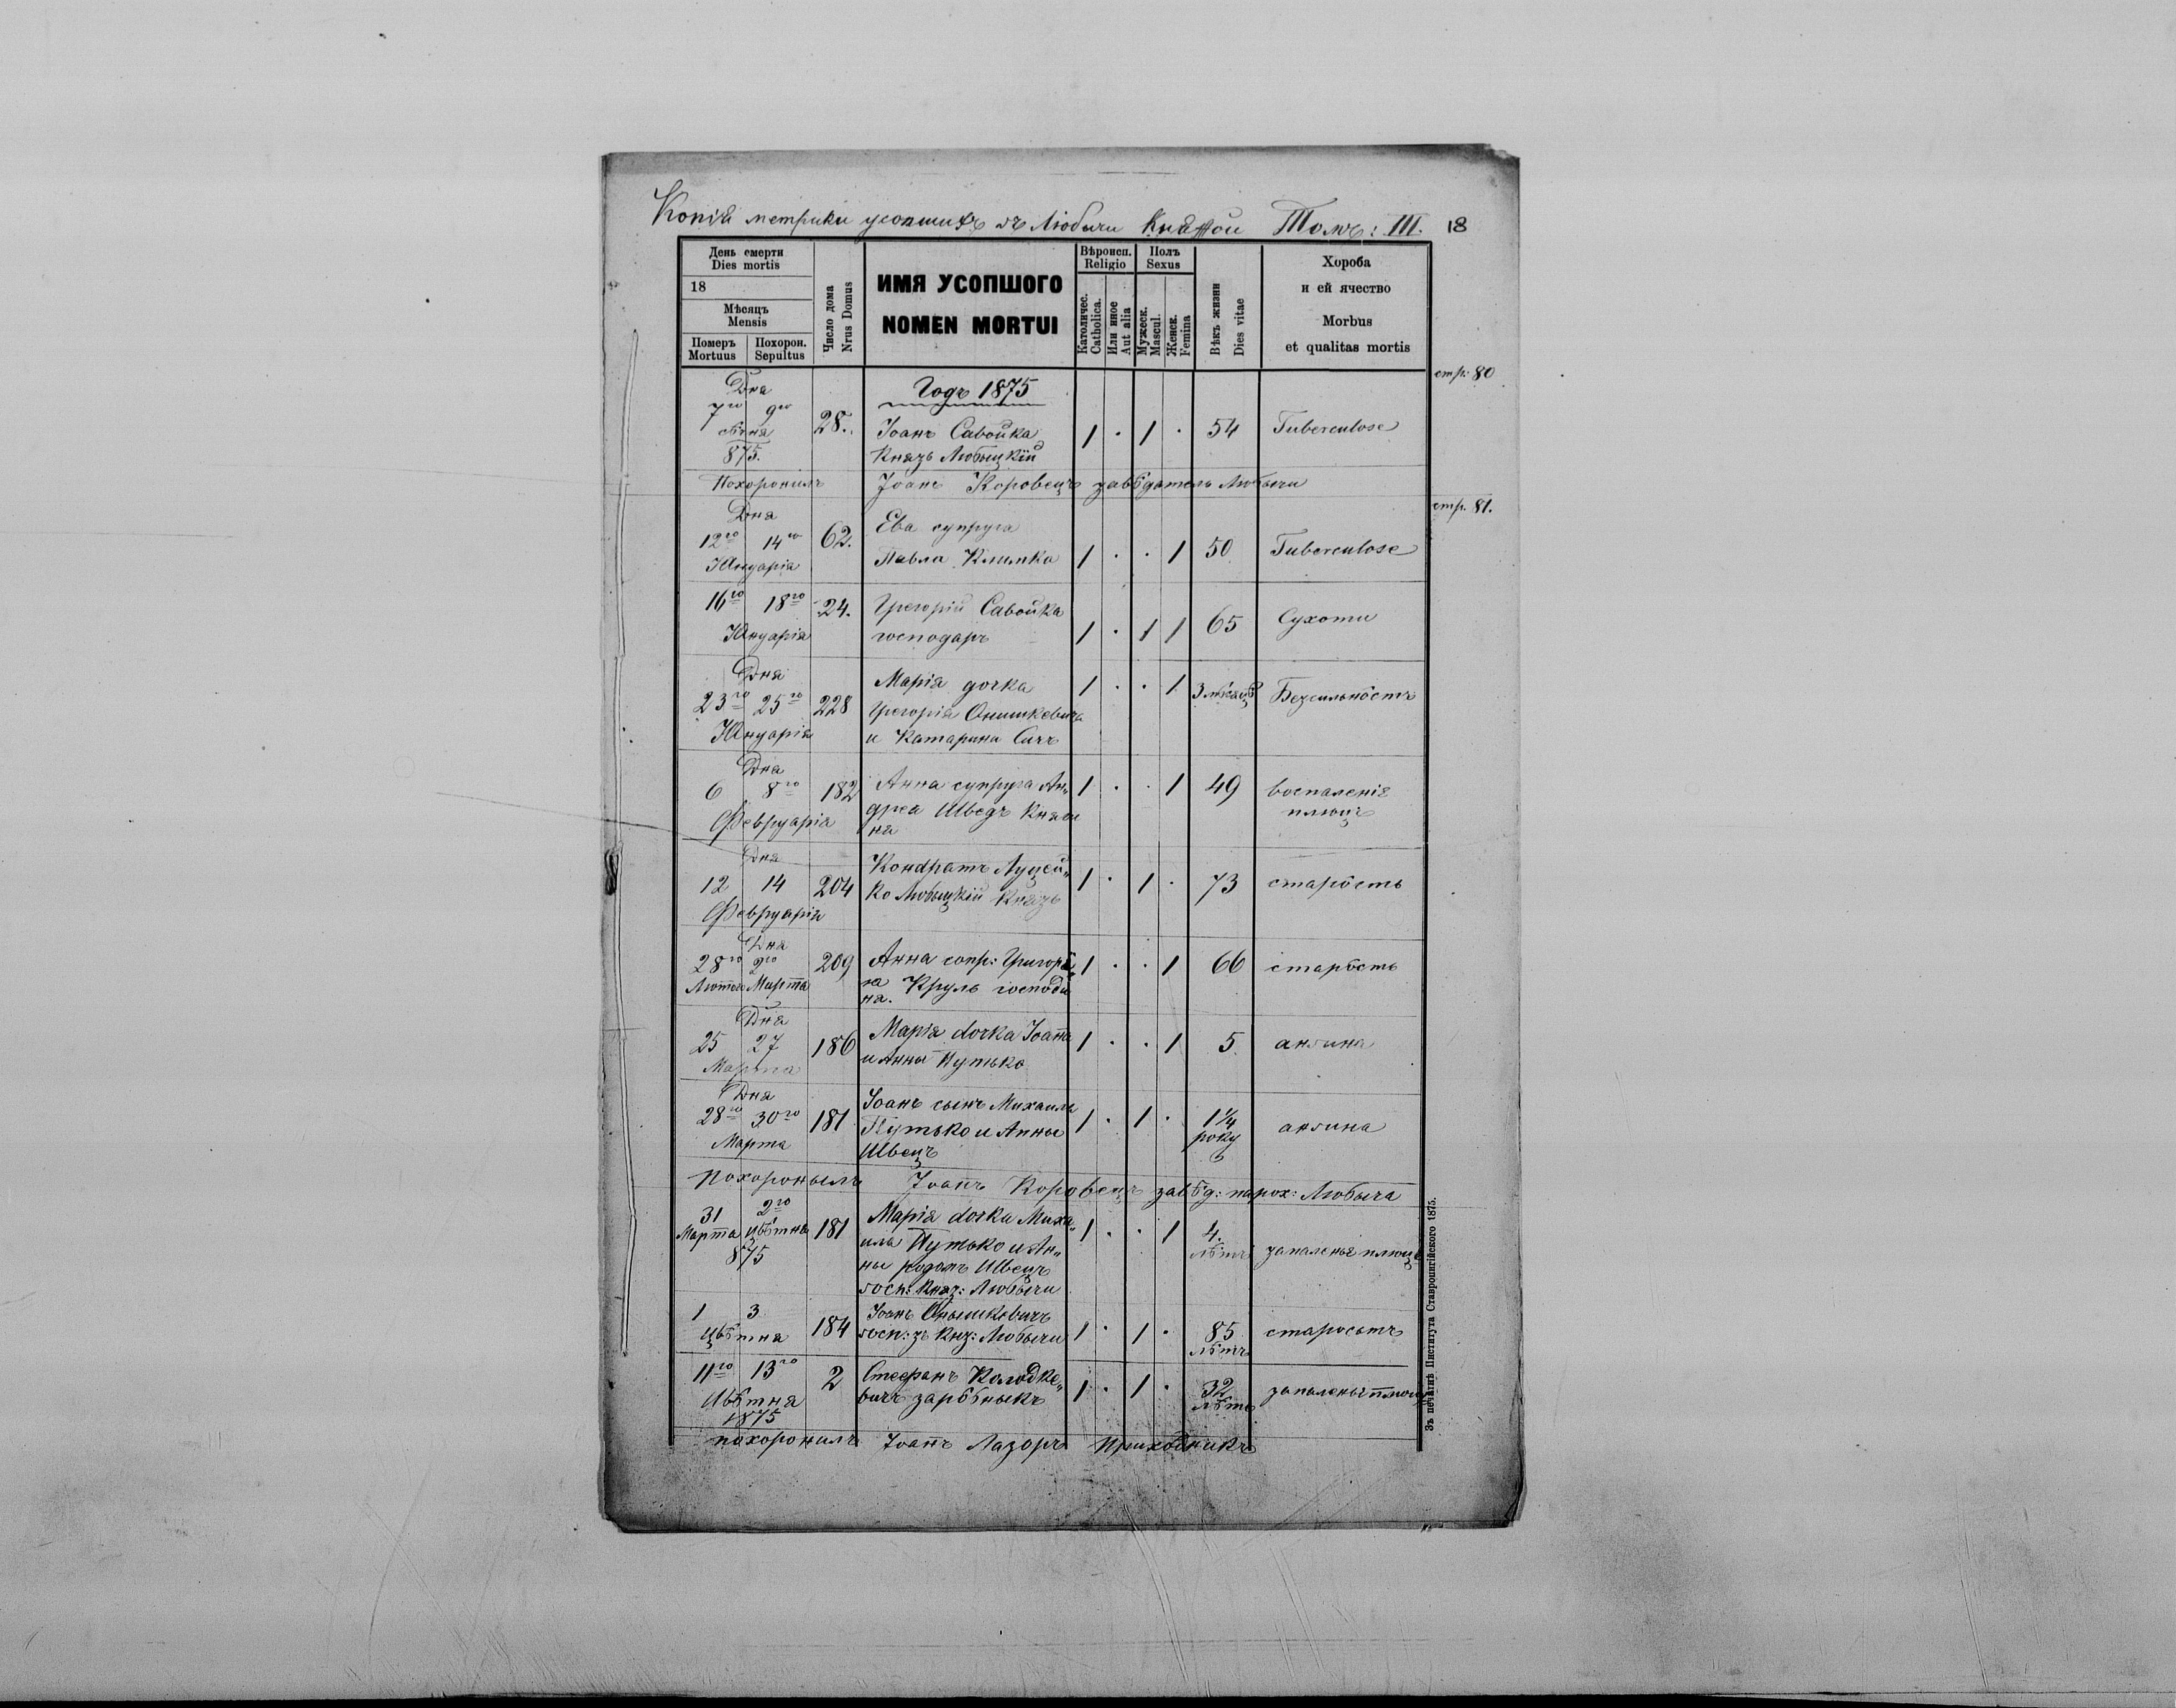 Копія метрики усопшихъ въ Любычи Княжой Томъ: III. 18
День смерти
Dies mortis
18
Мѣсяцъ
Mensis
Померъ
Mortuus
Похорон.
Sepultus
Число дома
Nrus Domus
ИМЯ УСОПШОГО
NOMEN MORTUI
Вѣроисп.
Religio
Католичес.
Catholica.
Или иное
Aut alia
Полъ
Sexus
Мужеск.
Mascul.
Женск.
Femina
Вѣкъ жизни
Dies vitae
Хороба
и ей ячество
Morbus
et qualitas mortis
стр: 80
Дна Годъ 1875
7го 9го 28. Іоанъ Савойка 1 · 1 · 54 Tuberculose
875. Князь Любыцкій
Похоронилъ Іоанъ Коровецъ завѣдатель Любычи
стр. 81.
Дна Ева супруга
12го 14го 62. Павла Климко 1 · · 1 50 Tuberculose
Януарія
16го 18го 24. Григорій Савойка
Януарія господаръ 1 · 1 1 65 Сухоти
Дня Марія дочка 1 · · 1 3 мѣсяцѣ Безсильность
23го 25го 228 Григорія Онишкевича
Януарія и Катарина Сичъ
Дна
6 8го 182 Анна супруга Ан„ 1 · · 1 49 воспаленія
Февруарія дрея Шведъ Княги плюцъ
на
Дна Кондратъ Луцей„
12 14 204 ко Любыцкій Князь 1 · 1 · 73 старость
Февруарія
Дна
28го 2го 209 Анна сопр: Григорі„ 1 · · 1 66 старость
Лютого Марта на. Круль господи
Дня
25 27 186 Марія dочка Іоанна 1 · · 1 5. ангина
Марта и Анны Путько
Дна
28го 30го 181 Іоанъ сынъ Михаила 1 · 1 · 1¼ ангина
Марта Путько и Анны року
Швецъ
похоронылъ Іоанъ Коровецъ завѣд: парох: Любыча
31 2го 181 Марія dочка Миха„ 1 · · 1 4. запаленье плюцъ
Марта Цвѣтня ила Путько и Ан„ лѣтъ
875 ны родомъ Швецъ
госп: Княз: Любычи
1 3 184 Іоанъ Онышкевичъ
Цвѣтня госп: зъ Кнз: Любычи 1 · 1 · 85 старость
лѣтъ
11го 13го 2 Стефанъ Колодке„ 1 · 1 · 32 запаленье плюцъ
Цвѣтня вичъ зарѣбныкъ лѣтъ
1875
похоронилъ Іоанъ Лазоръ приходникъ
Зъ печатнѣ Института Ставропигійского 1875.